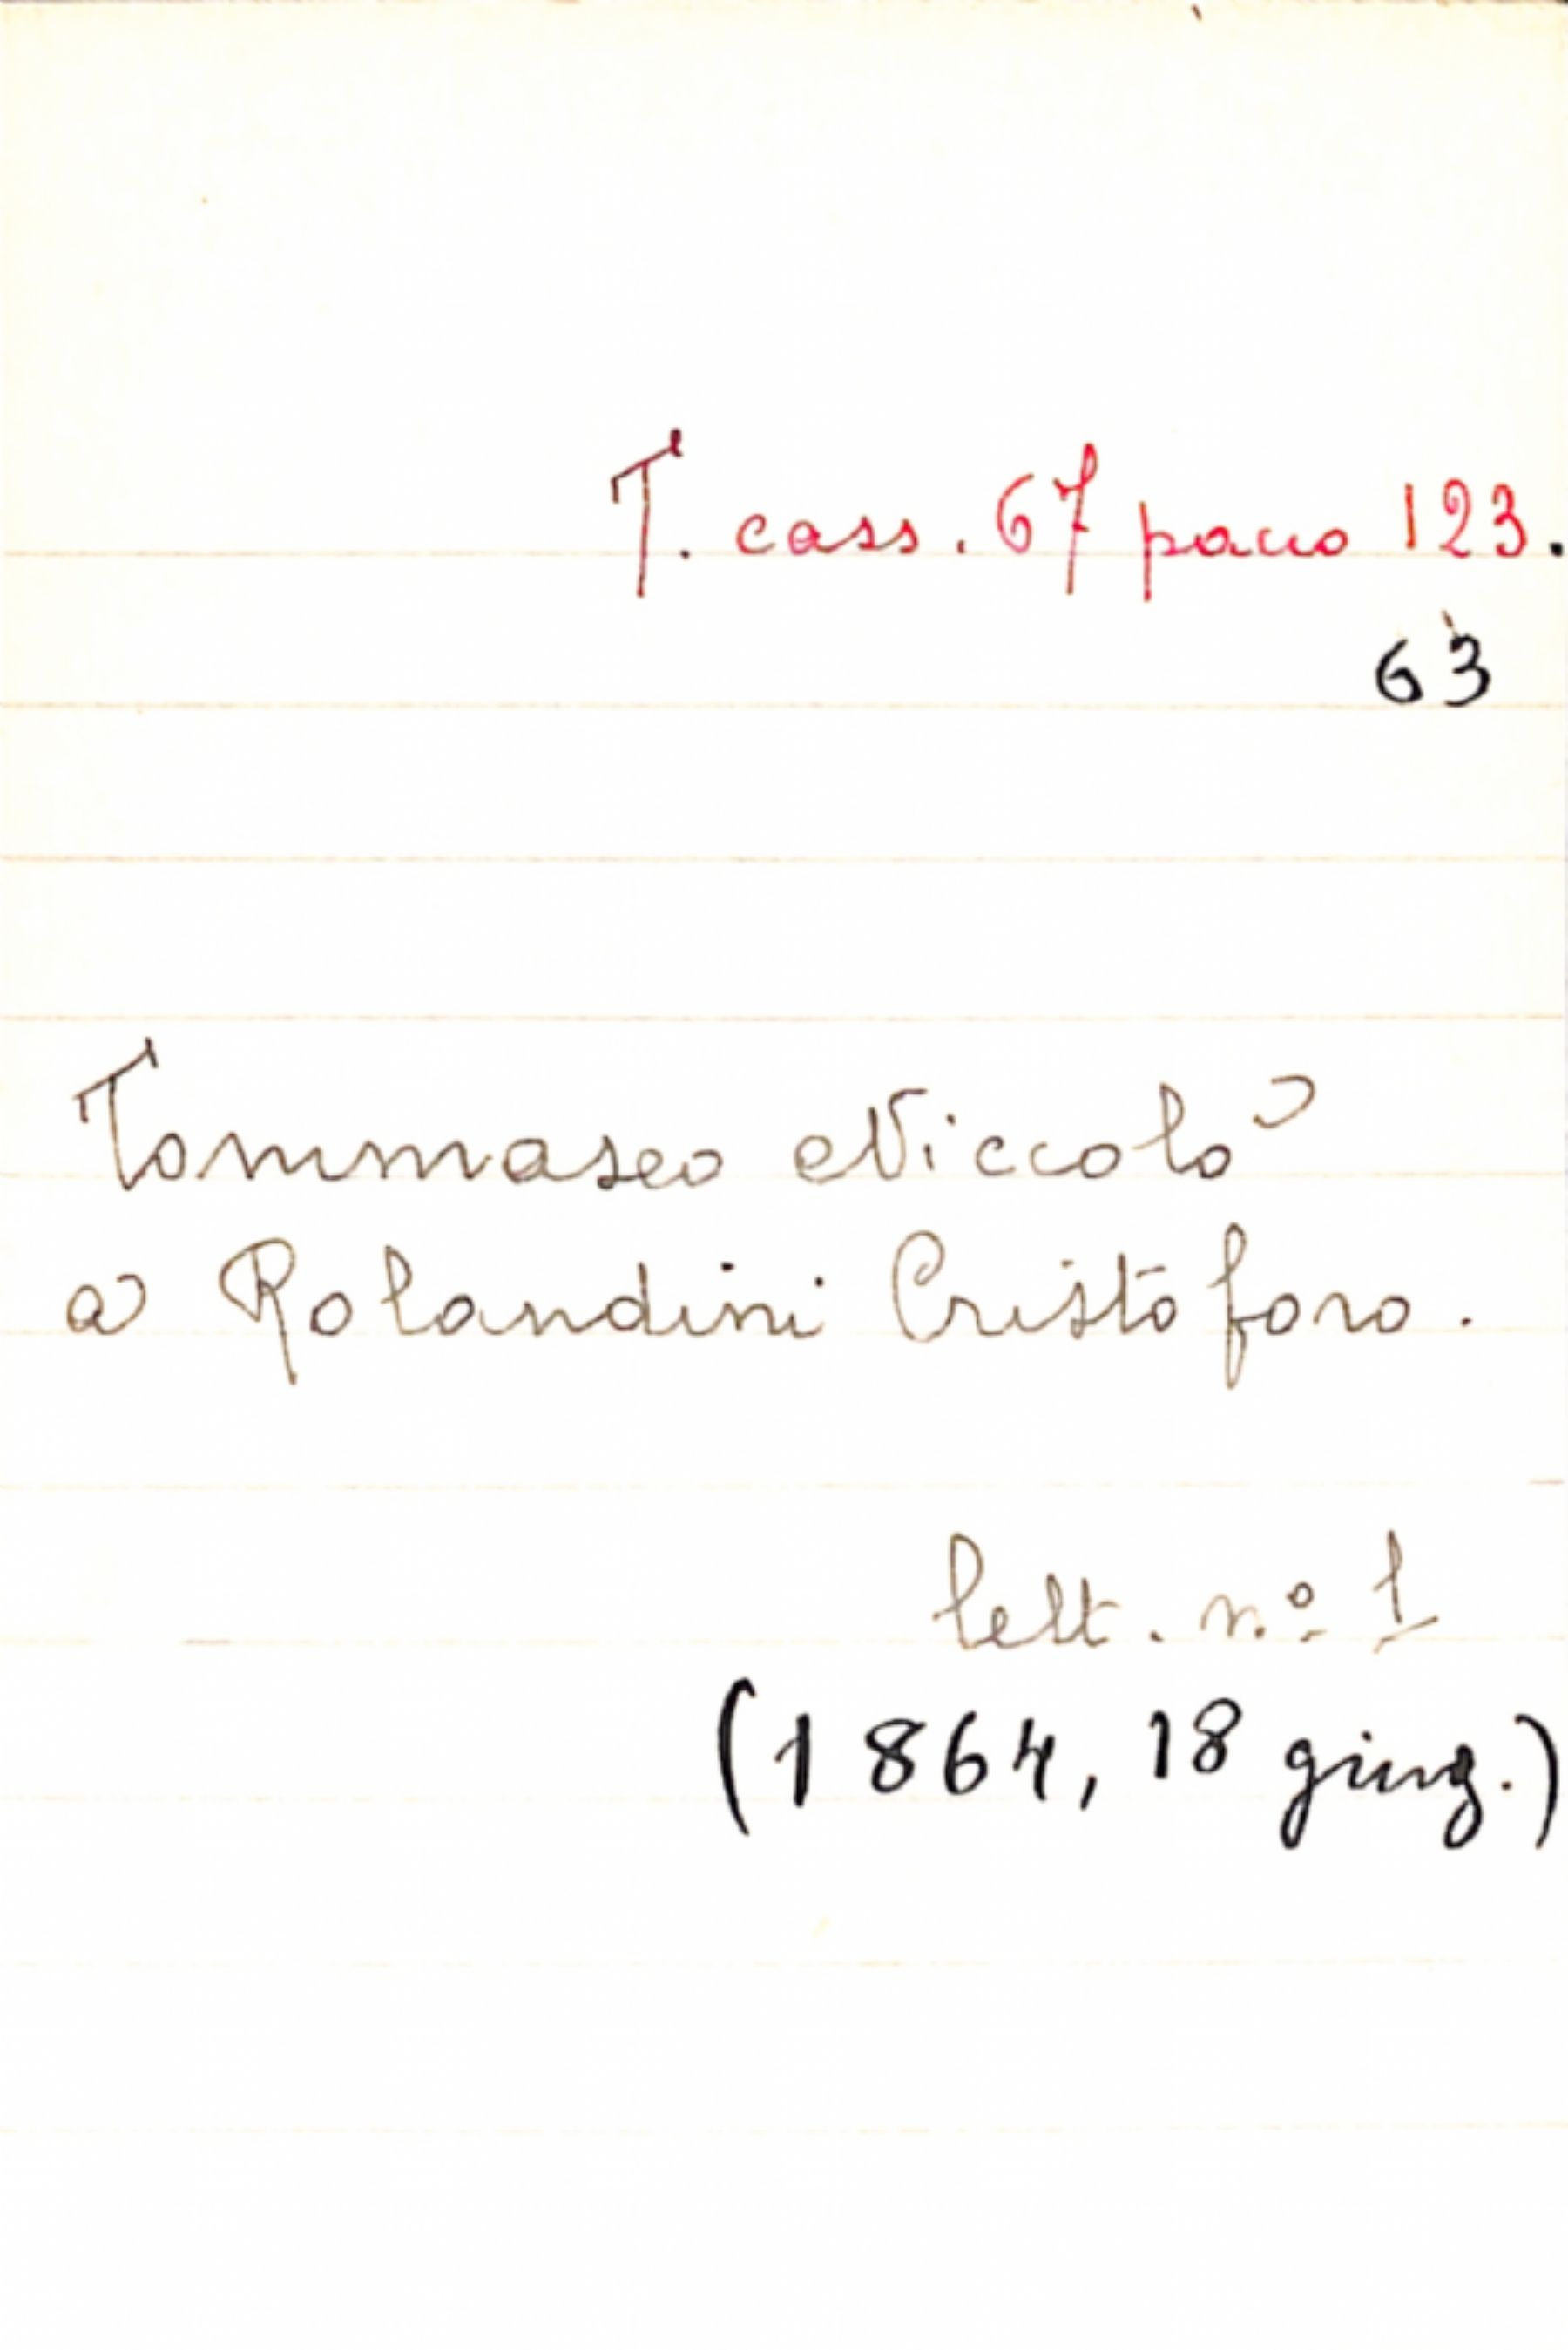 T. cass. 67 pacco 123.
63
Tommaseo Niccolò
a Rolandini Cristoforo.
lett. n.º 1
(1864, 18 giug.)